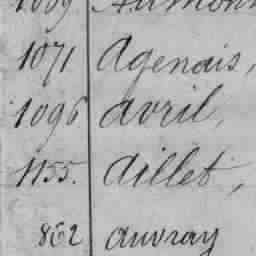 1071 Agenais,
1096 avril,
1155. aillet,
862 auvray